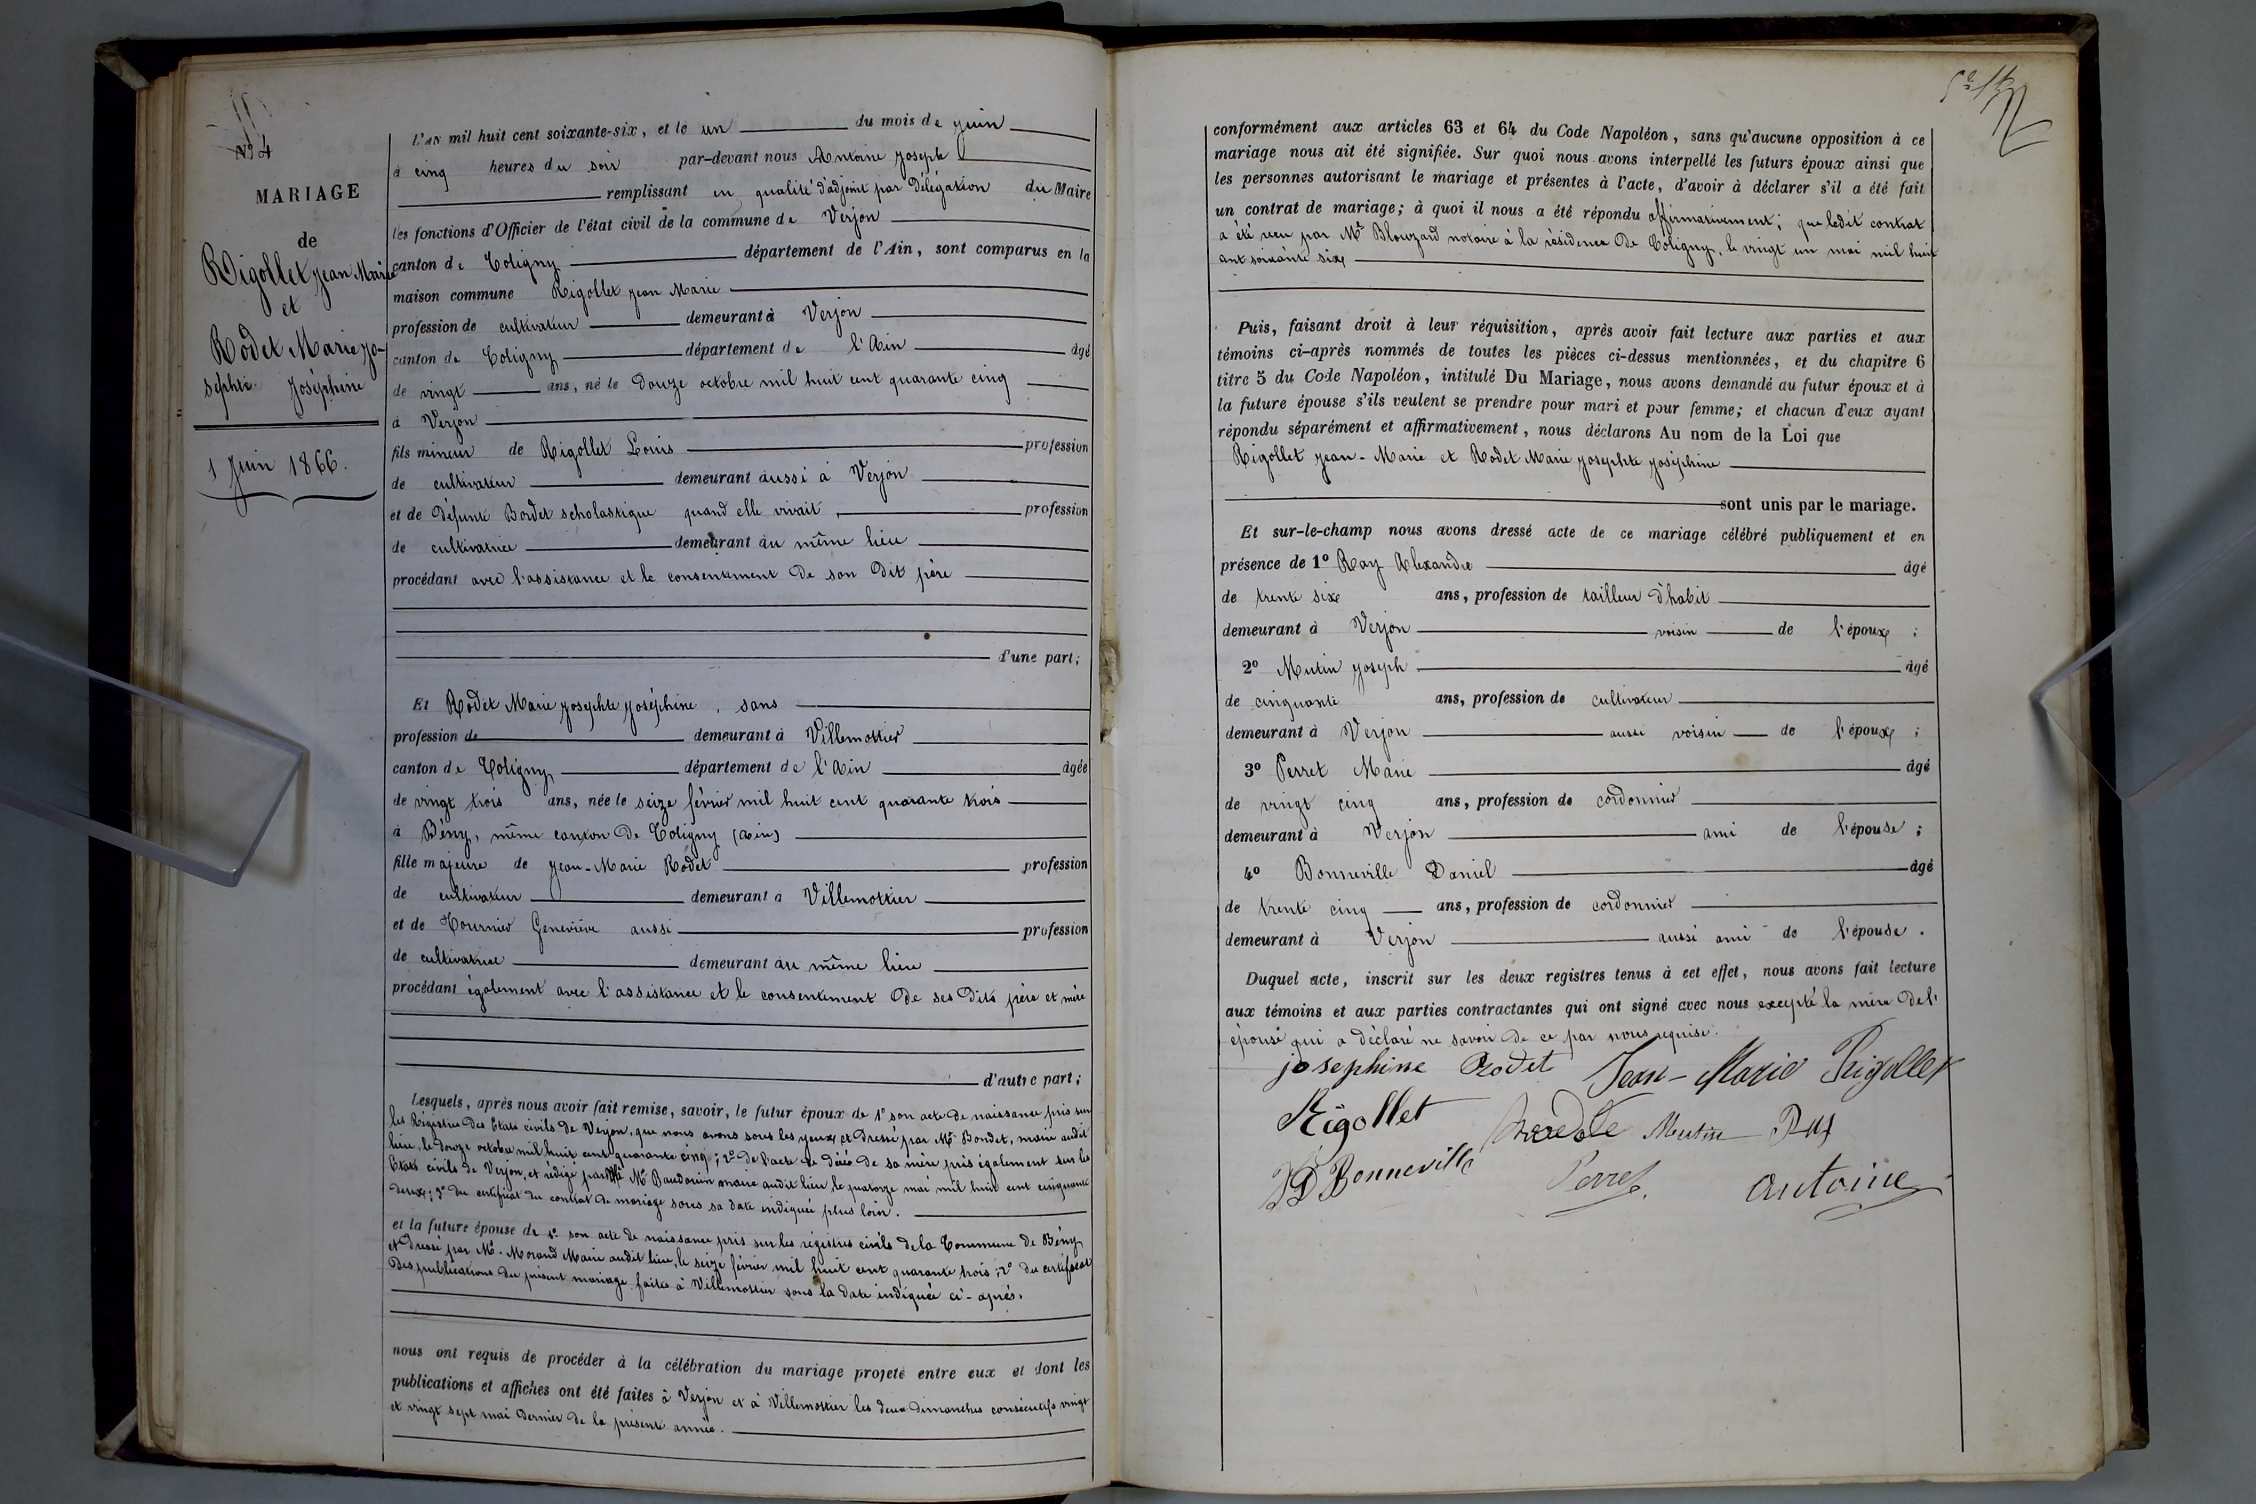 N° 4
MARIAGE
de
Rigollet Jean Marie
et
Rodet Marie Jo-
sephte Joséphine
1 Juin 1866.
L'AN mil huit cent soixante-six, et le un du mois de juin
à cinq heures du soir par-devant nous Antoine Joseph
remplissant en qualité d'adjoint par Délégation du Maire
les fonctions d'Officier de l'état civil de la commune de Verjon
canton de Coligny département de l'Ain, sont comparus en la
maison commune Rigollet Jean Marie
profession de cultivateur demeurant à Verjon
canton de Coligny département de l'Ain âgé
de vingt ans, né le Douze octobre mil huit cent quarante cinq
à Verjon
fils mineur de Rigollet Louis profession
de cultivateur demeurant aussi à Verjon
et de Défunte Bordet scholastique quand elle vivait, profession
de cultivatrice demeurant au même lieu
procédant avec l'assistance et le consentement de son dit père
d'une part;
Et Rodet Marie Josephte Joséphine, sans
profession de demeurant à Villemottier
canton de Coligny département de l'Ain âgée
de vingt trois ans, née le seize février mil huit cent quarante trois
à Bény, même canton de Coligny (Ain)
fille majeure de Jean-Marie Rodet profession
de cultivateur demeurant à Villemottier
et de Tournier Geneviève aussi profession
de cultivatrice demeurant au même lieu
procédant également avec l'assistance et le consentement de ses dits père et mère
d'autre part;
Lesquels, après nous avoir fait remise, savoir, le futur époux de 1° son acte de naissance pris sur
les Régistres des Etats civils de Verjon, que nous avons sous les yeux et dressé par Mr Bondet, maire audit
lieu, le douze octobre mil huit cent quarante cinq; 2° de l'acte de décès de sa mère pris également sur les
Etats civils de Verjon, et rédigé par Mr Baudouin maire audit lieu le quatorze mai mil huit cent cinquante
deux; 3° du certificat du contrat de mariage sous sa date indiquée plus loin.
et la future épouse de 1° son acte de naissance pris sur les régistres civils de la Commune de Bény
et dressé par Mr. Morand Maire audit lieu, le seize février mil huit cent quarante trois; 2° du certificat
des publications du présent mariage faites à Villemottier sous la date indiquée ci-après.
nous ont requis de procéder à la célébration du mariage projeté entre eux et dont les
publications et affiches ont été faites à Verjon et à Villemottier les deux dimanches consécutifs vingt
et vingt sept mai dernier de la présente année.
conformément aux articles 63 et 64 du Code Napoléon, sans qu'aucune opposition à ce
mariage nous ait été signifiée. Sur quoi nous avons interpellé les futurs époux ainsi que
les personnes autorisant le mariage et présentes à l'acte, d'avoir à déclarer s'il a été fait
un contrat de mariage; à quoi il nous a été répondu affirmativement; que ledit contrat
a été reçu par Me Blouzard notaire à la résidence de Coligny, le vingt un mai mil huit
cent soixante six
Puis, faisant droit à leur réquisition, après avoir fait lecture aux parties et aux
témoins ci-après nommés de toutes les pièces ci-dessus mentionnées, et du chapitre 6
titre 5 du Code Napoléon, intitulé Du Mariage, nous avons demandé au futur époux et à
la future épouse s'ils veulent se prendre pour mari et pour femme; et chacun d'eux ayant
répondu séparément et affirmativement, nous déclarons Au nom de la Loi que
Rigollet Jean-Marie et Rodet Marie Josephte Joséphine
sont unis par le mariage.
Et sur-le-champ nous avons dressé acte de ce mariage célébré publiquement et en
présence de 1° Ray Alexandre âgé
de trente six ans, profession de tailleur d'habit
demeurant à Verjon voisin de l'époux;
2° Mutin Joseph âgé
de cinquante ans, profession de cultivateur
demeurant à Verjon aussi voisin de l'époux;
3° Perret Marie âgé
de vingt cinq ans, profession de cordonnier
demeurant à Verjon ami de l'épouse;
4° Bonneville Daniel âgé
de trente cinq ans, profession de cordonnier
demeurant à Verjon aussi ami de l'épouse.
Duquel acte, inscrit sur les deux registres tenus à cet effet, nous avons fait lecture
aux témoins et aux parties contractantes qui ont signé avec nous excepté la mère de l'
épouse qui a déclaré ne savoir de ce par nous requise.
josephine Rodet Jean-Marie Rigollet
Rigollet Mutin Ray
D Bonneville Perret Antoine